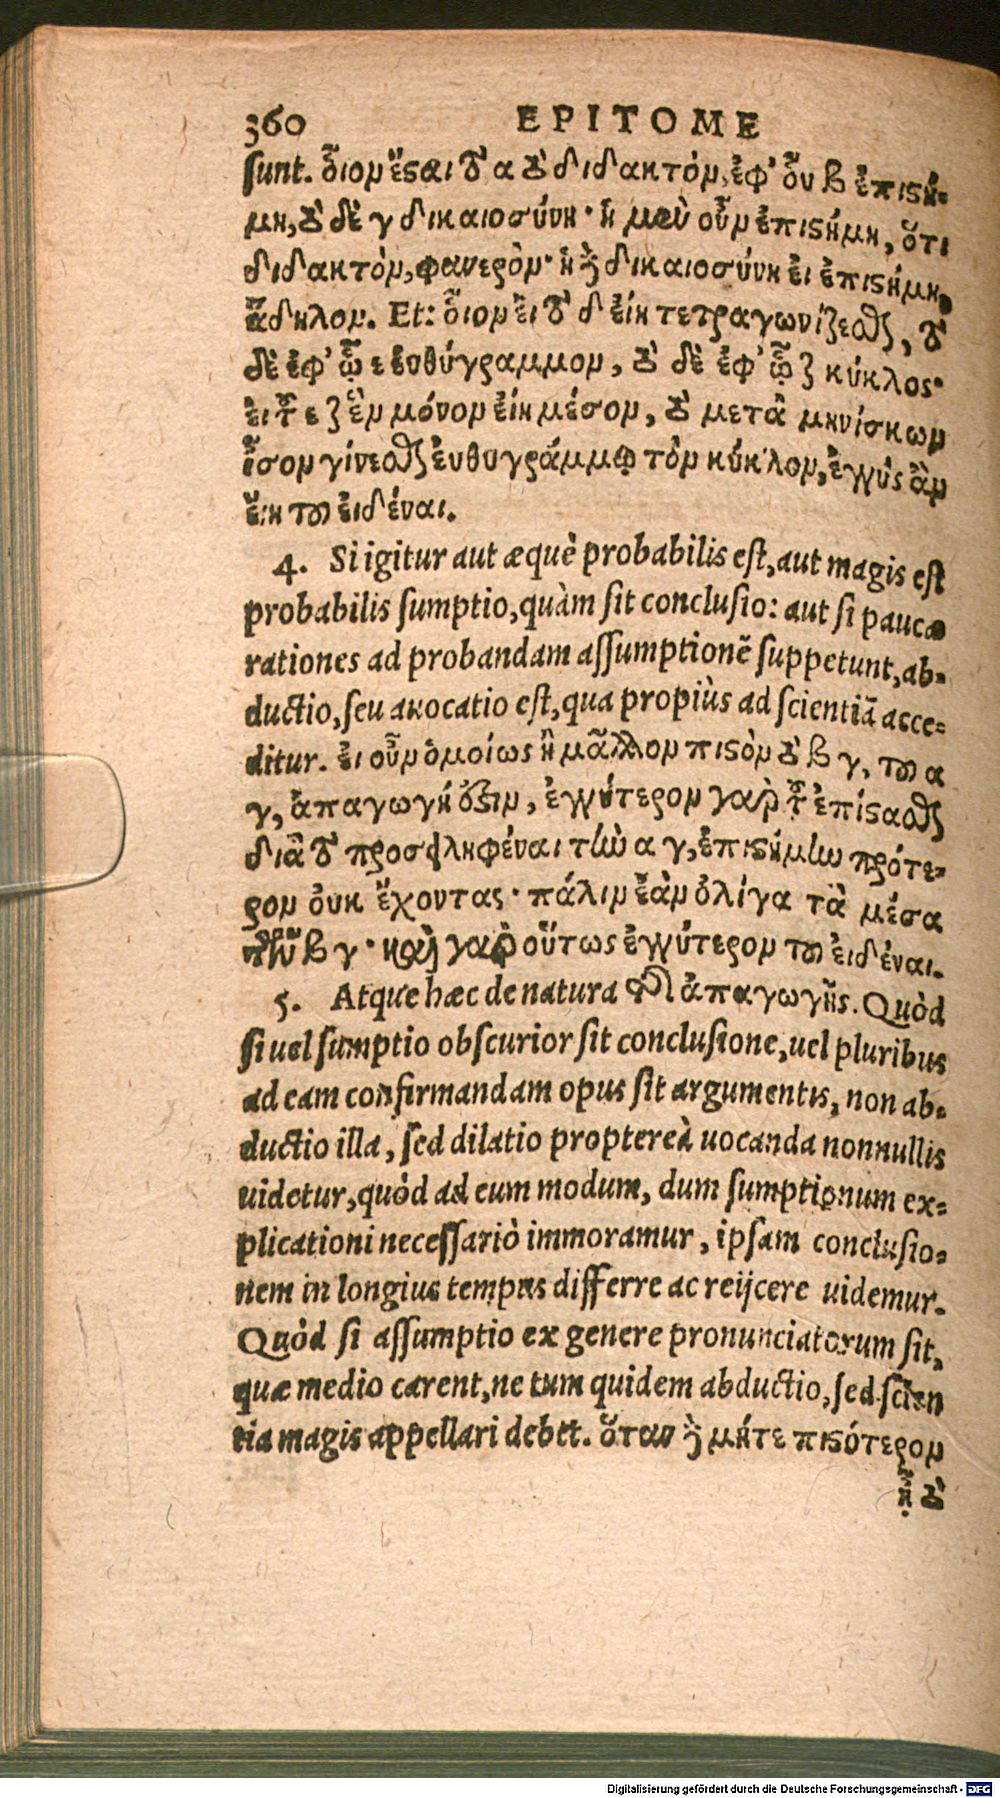 360 EPITOME
sunt. οἷον ἔςαι τὸ α τὸ διδακτὸν, ἐφ' οὗ β ἐπιςή-
μη, τὸ δὲ γ δικαιοσύνη· ἡ μὲν οὖν ἐπιςήμη, ὅτι
διδακτὸν, φανερὸν· ἡ δὲ δικαιοσύνη εἰ ἐπιςήμη,
ἄδηλον. Et: οἷον εἰ τὸ δ εἴη τετραγωνίζεσθαι, τὸ
δὲ ἐφ' ᾧ ε εὐθύγραμμον, τὸ δὲ ἐφ' ᾧ ζ κύκλος·
εἰ τῆς ε ζ ἓν μόνον εἴη μέσον, τὸ μετὰ μηνίσκων
ἴσον γίνεσθαι εὐθυγράμμῳ τὸν κύκλον, ἐγγὺς ἂν
εἴη τοῦ εἰδέναι.
4. Si igitur aut æquè probabilis est, aut magis est
probabilis sumptio, quàm sit conclusio: aut si paucæ
rationes ad probandam assumptionẽ suppetunt, ab-
ductio, seu auocatio est, qua propiùs ad scientiã acce-
ditur. εἰ οὖν ὁμοίως ἢ μᾶλλον πιςὸν τὸ β γ, τοῦ α
γ, ἀπαγωγή ἐςιν, ἐγγύτερον γὰρ τοῦ ἐπίςασθαι
διὰ τὸ προσειληφέναι τὴν α γ, ἐπιςήμην πρότε-
ρον οὐκ ἔχοντας· πάλιν ἐὰν ὀλίγα τὰ μέσα
τῶν β γ· καὶ γὰρ οὕτως ἐγγύτερον τοῦ εἰδέναι.
5. Atque hæc de natura τῆς ἀπαγωγῆς. Quòd
si uel sumptio obscurior sit conclusione, uel pluribus
ad eam confirmandam opus sit argumentis, non ab-
ductio illa, sed dilatio proptereà uocanda nonnullis
uidetur, quòd ad eum modum, dum sumptionum ex-
plicationi necessariò immoramur, ipsam conclusio-
nem in longius tempus differre ac reijcere uidemur.
Quòd si assumptio ex genere pronunciatorum sit,
quæ medio carent, ne tum quidem abductio, sed scien
tia magis appellari debet. ὅταν δὲ μήτε πιςότερον
ᾖ τὸ
Digitalisierung gefördert durch die Deutsche Forschungsgemeinschaft - DFG